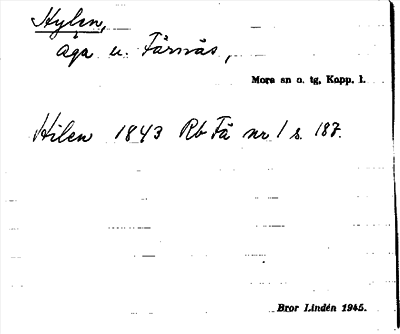 Hylen,
äga u. Färnäs,
Mora sn o. tg, Kopp. l.
Hilen 1843 Rb Fä nr 1 s. 187.
Bror Lindén 1945.